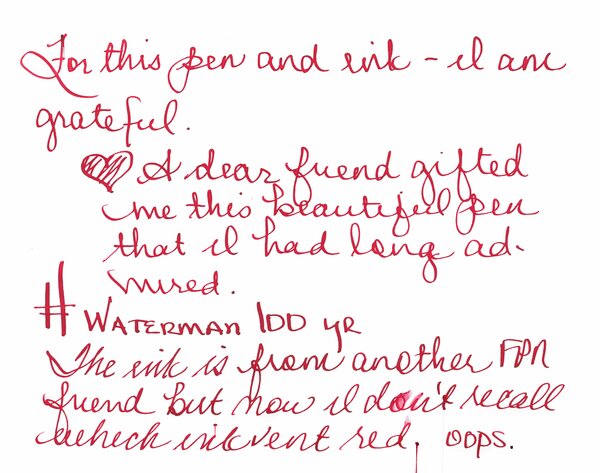 For this pen and ink - I am
grateful.
A dear friend gifted
me this beautiful pen
that I had long ad-
mired.
# WATERMAN 100 YR
The ink is from another FPN
friend but now I don't recall
which inkvent red, oops.